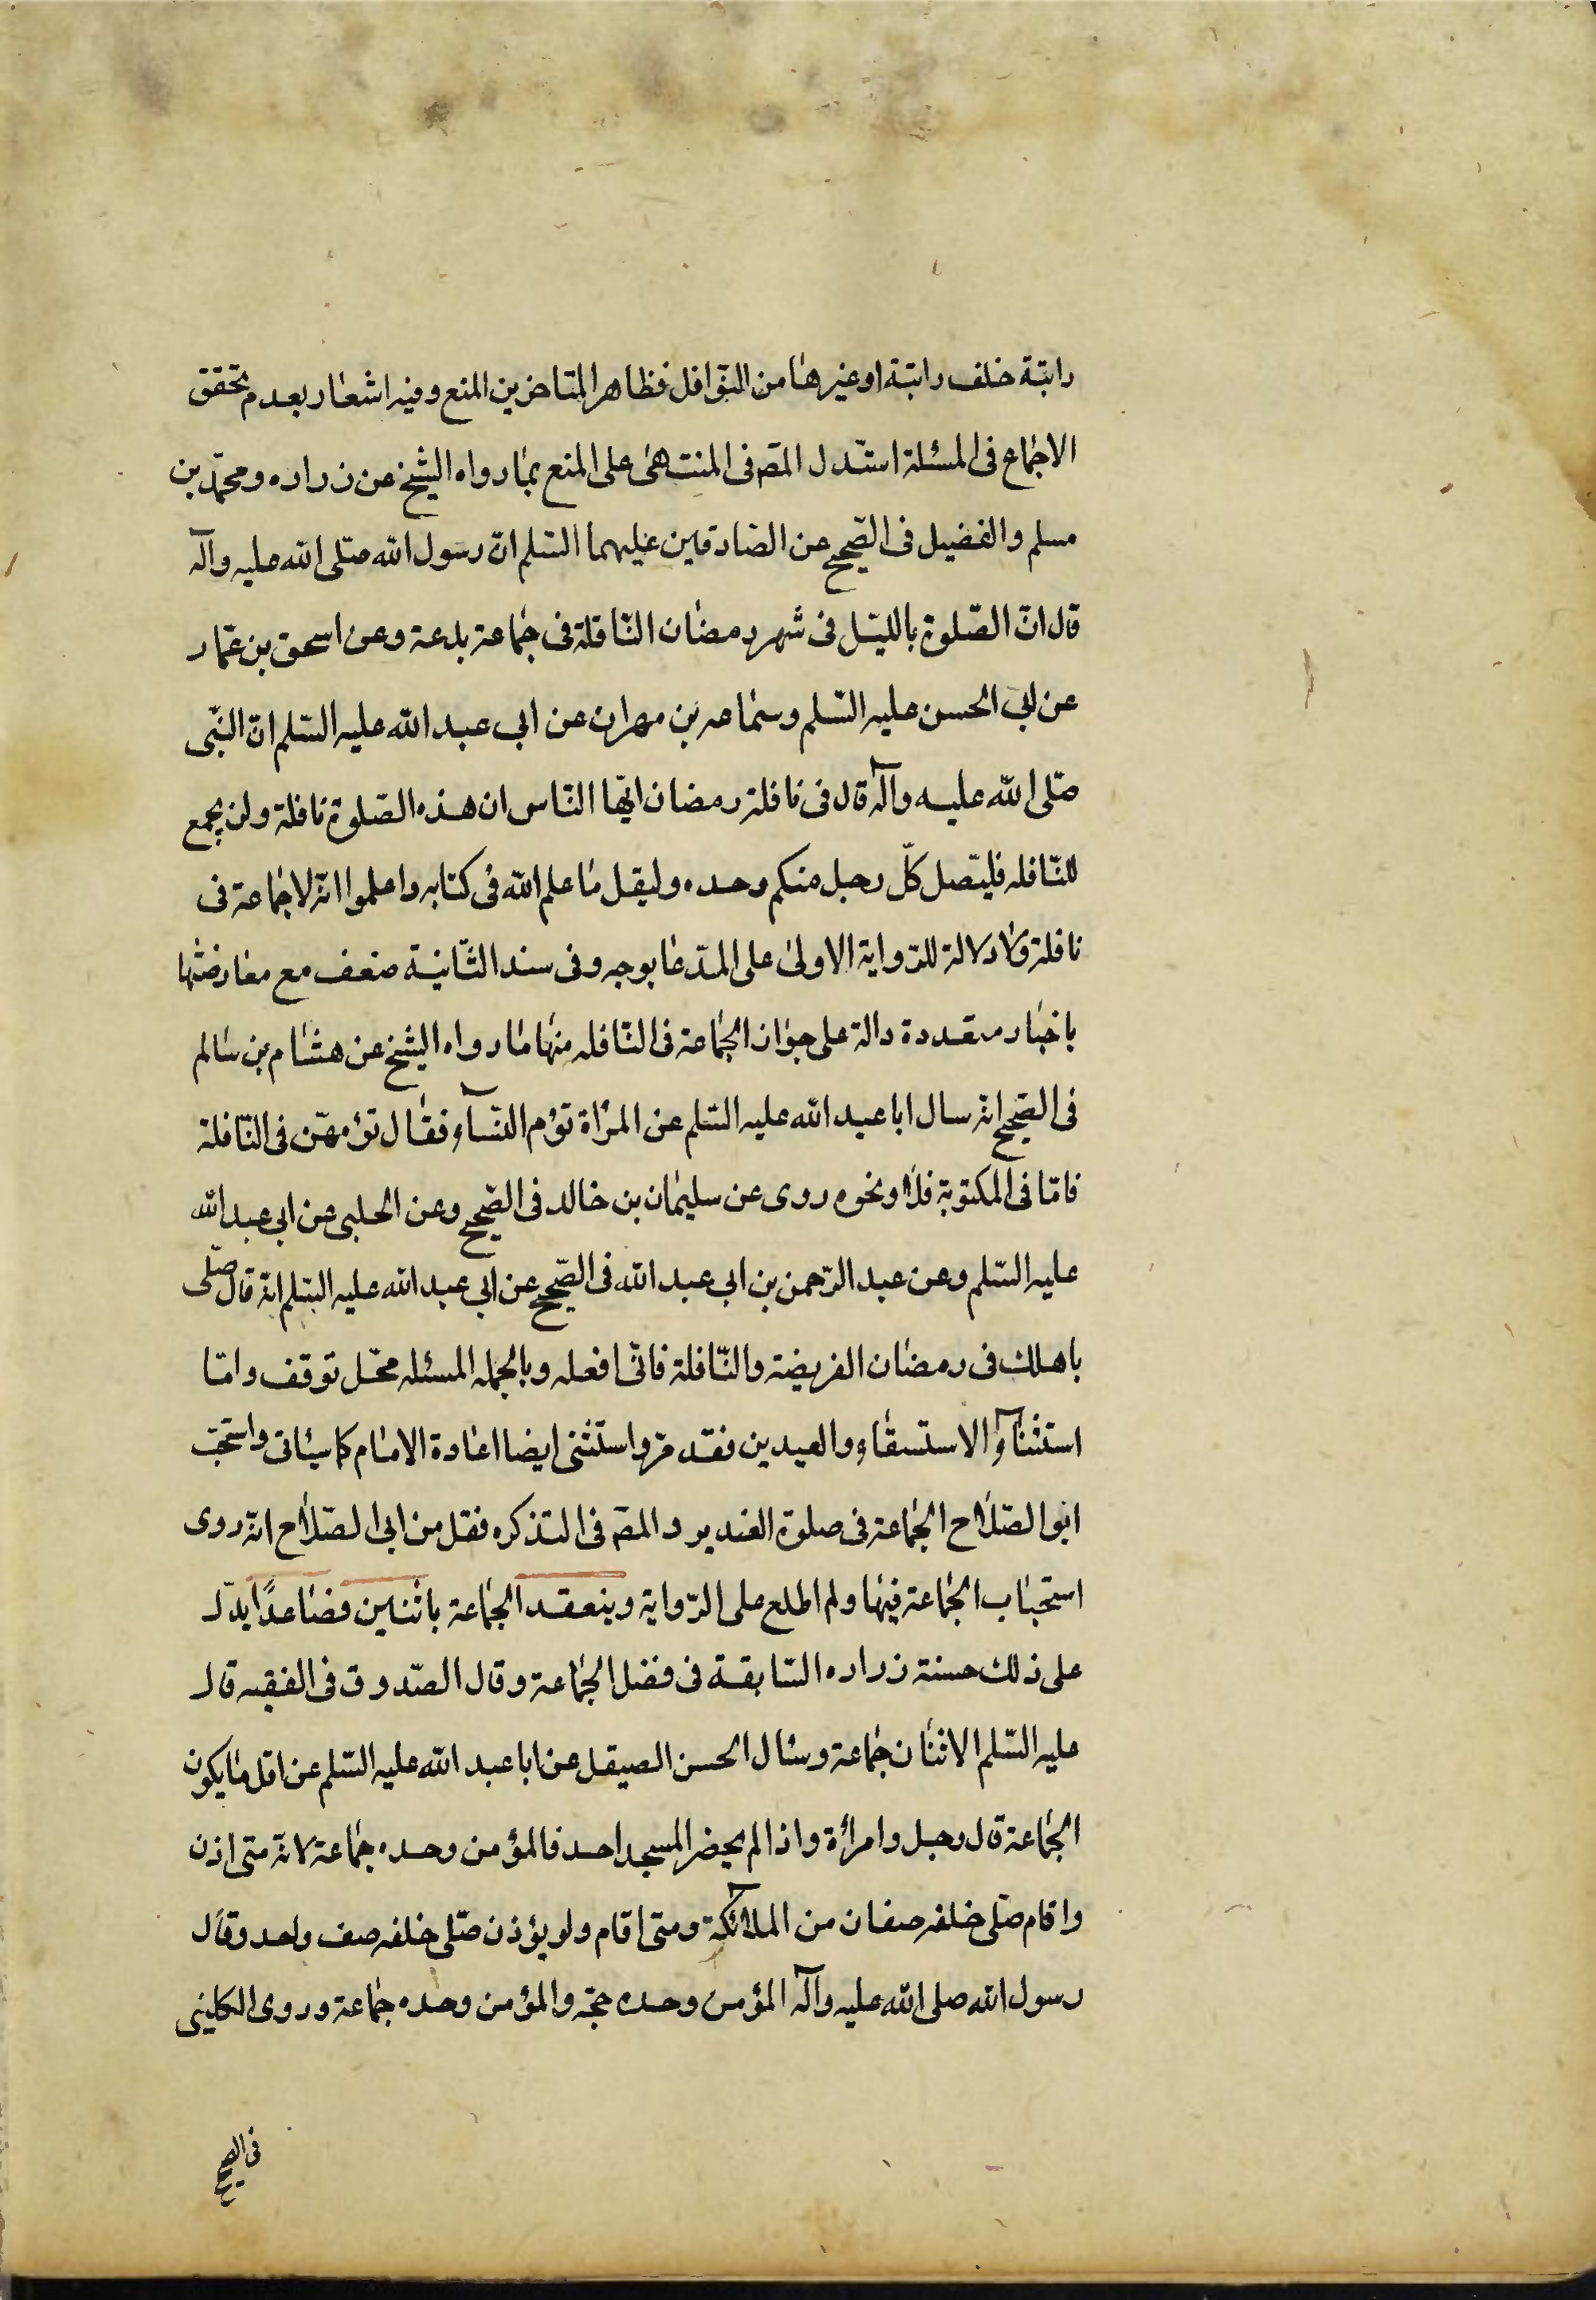 راتبة خلف راتبة او غيرها من النّوافل فظاهر المتاخرين المنع وفيه اشعار بعدم تحقق
الاجماع فى المسئلة استدل المص فى المنتهى على المنع بما رواه الشيخ عن زراره ومحمّد بن
مسلم والفضيل فى الصّحيح عن الصّادقين عليهما السّلم انّ رسول الله صلّى الله عليه وآله
قال انّ الصّلوة بالليّل فى شهر رمضان النّافلة فى جماعة بدعة وعن اسحق بن عمّار
عن ابى الحسن عليه السّلم وسماعه بن مهران عن ابى عبد الله عليه السّلم انّ النّبى
صلّى الله عليه وآله قال فى نافلة رمضان ايّها النّاس ان هذه الصّلوة نافلة ولن يجمع
للنّافله فليصل كلّ رجل منكم وحده وليقل ما علم الله فى كتابه واعلموا انّه لا جماعة فى
نافلة ولا دلالة للرّواية الاولى على المدّعا بوجه وفى سند الثّانية ضعف مع معارضتها
باخبار متعددة دالة على جواز الجماعة فى النّافله منها ما رواه الشيخ عن هشام بن سالم
فى الصّحيح انّه سال ابا عبد الله عليه السّلم عن المراة تؤم النّسآء فقال تؤمهنّ فى النّافلة
فامّا فى المكتوبة فلا ونحوه روى عن سليمان بن خالد فى الصّحيح وعن الحلبى عن ابى عبد الله
عليه السّلم وعن عبد الرّحمن بن ابى عبد الله فى الصّحيح عن ابى عبد الله عليه السّلم انّه قال صلّى
باهلك فى رمضان الفريضة والنّافلة فانّى افعله وبالجمله المسئله محّل توقف وامّا
استثنآؤ الاستسقاء والعيدين فقد مرّ واستثنى ايضا اعادة الامام كما سياتى واستحبّ
ابو الصّلاح الجماعة فى صلوة الغدير والمص فى التذكره نقل من ابى الصّلاح انّه روى
استحباب الجماعة فيها ولم اطلع على الرّواية وينعقد الجماعة باثنين فضاعدًا يدّل
على ذلك حسنة زراره السّابقة فى فضل الجماعة وقال الصّدوق فى الفقيه قال
عليه السّلم الاثنان جماعة وسئال الحسن الصيقل عن ابا عبد الله عليه السّلم عن اقل ما يكون
الجماعة قال رجل وامرأة واذا لم يحضر المسجد احد فالمؤمن وحده جماعة لانّه متى اذن
واقام صلّى خلفه صفان من الملائكة ومتى اقام ولو يؤذن صلّى خلفه صف واحد وقال
رسول الله صلى الله عليه وآله المؤمن وحده حجّه والمؤمن وحده جماعة وروى الكلينى
فى الصحيح